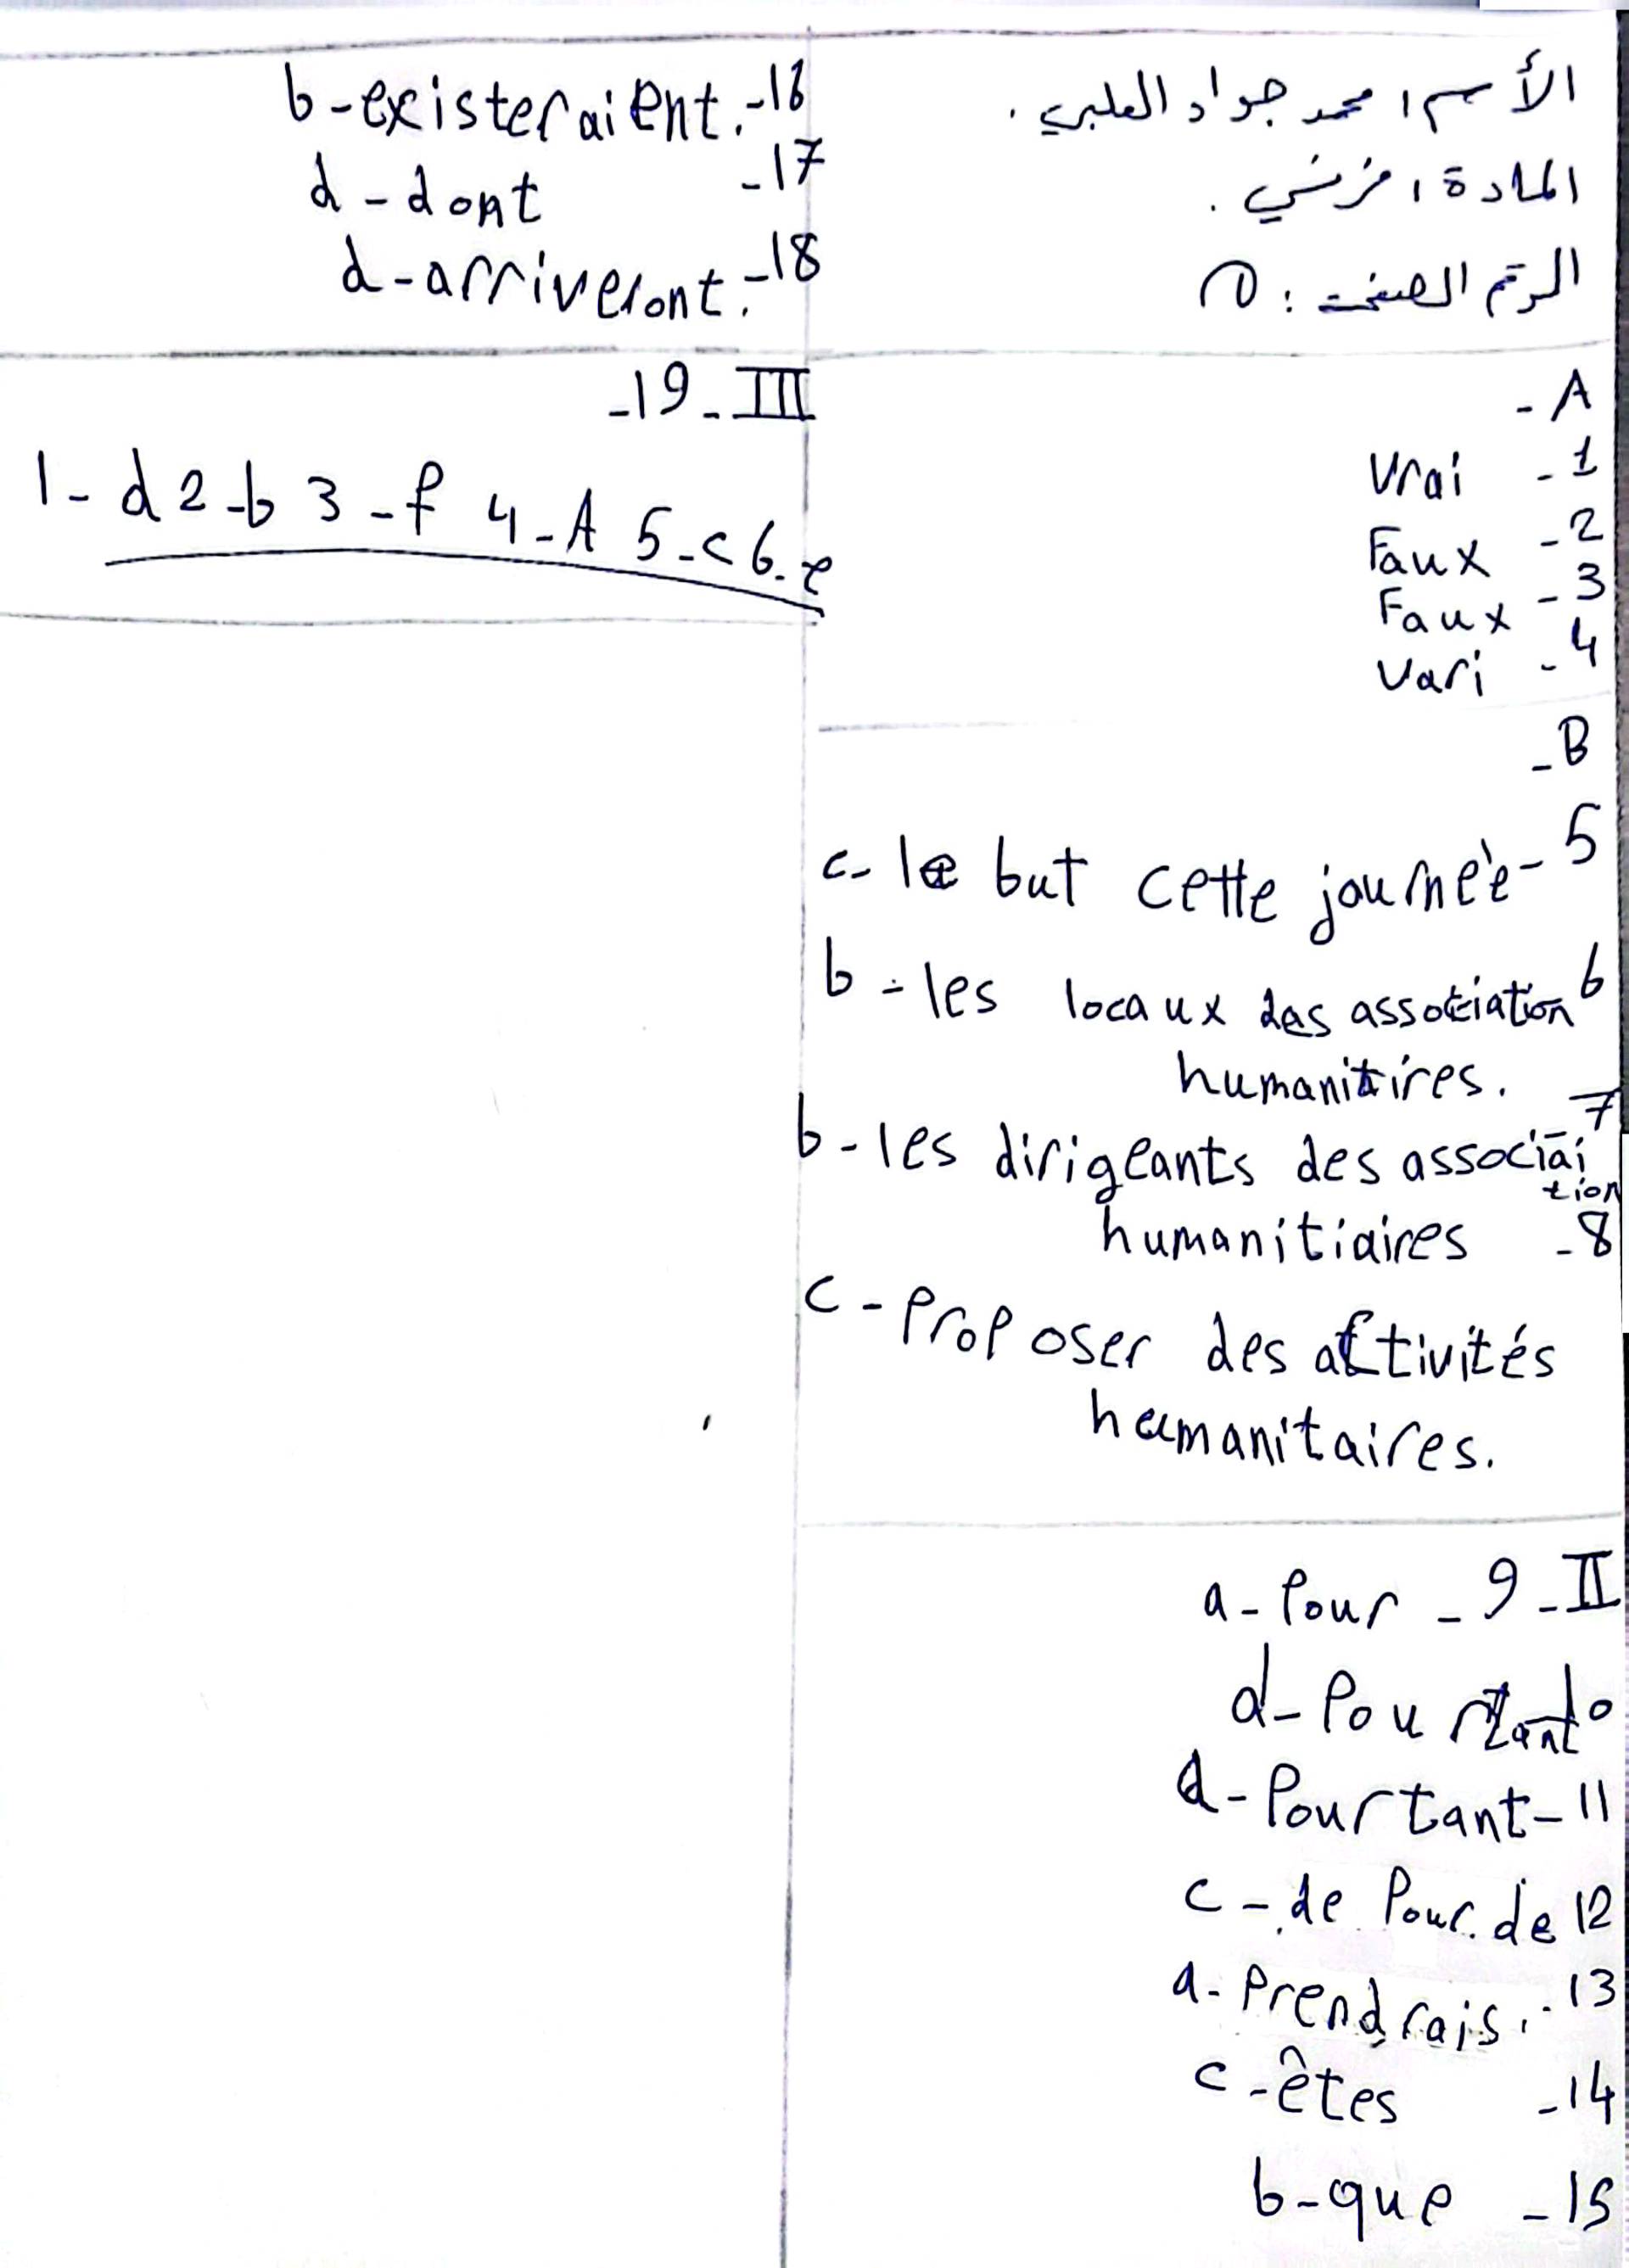 الأسم: محمد جواد العلبي.
المادة: فرنسي.
الرقم الصفحة: ①
A -
Vrai - 1
Faux - 2
Faux - 3
Vari - 4
B -
c- le but cette journéè - 5
b - les locaux des association 6
humanitires.
b - les dirigeants des associai 7
tion
humanitiaires - 8
c - Proposer des activités
humanitaires.
a - Pour - 9 - II
d - Pourtant 10
d - Pourtant - 11
c - de Pour. de 12
a - Prendrais. - 13
c - êtes - 14
b - que - 15
b - existeraient. - 16
d - dont - 17
d - arriveront. - 18
- 19 - III
1 - d 2 - b 3 - f 4 - A 5 - c 6 - e